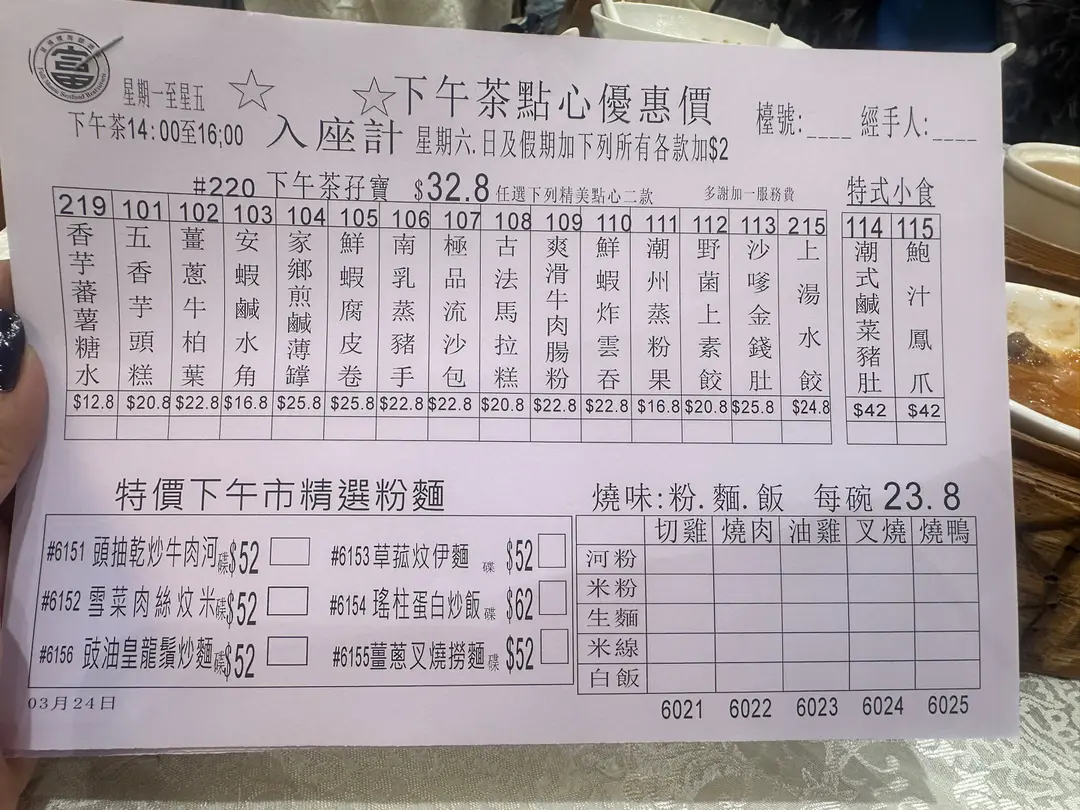 富
星期一至星五
☆ ☆下午茶點心優惠價
下午茶14:00至16;00 入座計 星期六.日及假期加下列所有各款加$2
檯號:____ 經手人:____
#220 下午茶孖寶 $32.8 任選下列精美點心二款 多謝加一服務費
特式小食
219 101 102 103 104 105 106 107 108 109 110 111 112 113 215 114 115
香芋蕃薯糖水
五香芋頭糕
薑蔥牛柏葉
安蝦鹹水角
家鄉煎鹹薄罉
鮮蝦腐皮卷
南乳蒸豬手
極品流沙包
古法馬拉糕
爽滑牛肉腸粉
鮮蝦炸雲吞
潮州蒸粉果
野菌上素餃
沙嗲金錢肚
上湯水餃
潮式鹹菜豬肚
鮑汁鳳爪
$12.8 $20.8 $22.8 $16.8 $25.8 $25.8 $22.8 $22.8 $20.8 $22.8 $22.8 $16.8 $20.8 $25.8 $24.8 $42 $42
特價下午市精選粉麵
#6151 頭抽乾炒牛肉河碟$52
#6153草菰炆伊麵 碟 $52
#6152 雪菜肉絲炆米碟$52
#6154 瑤柱蛋白炒飯碟 $62
#6156 豉油皇龍鬚炒麵碟$52
#6155薑蔥叉燒撈麵碟 $52
03月24日
燒味:粉.麵.飯 每碗 23.8
切雞 燒肉 油雞 叉燒 燒鴨
河粉
米粉
生麵
米線
白飯
6021 6022 6023 6024 6025